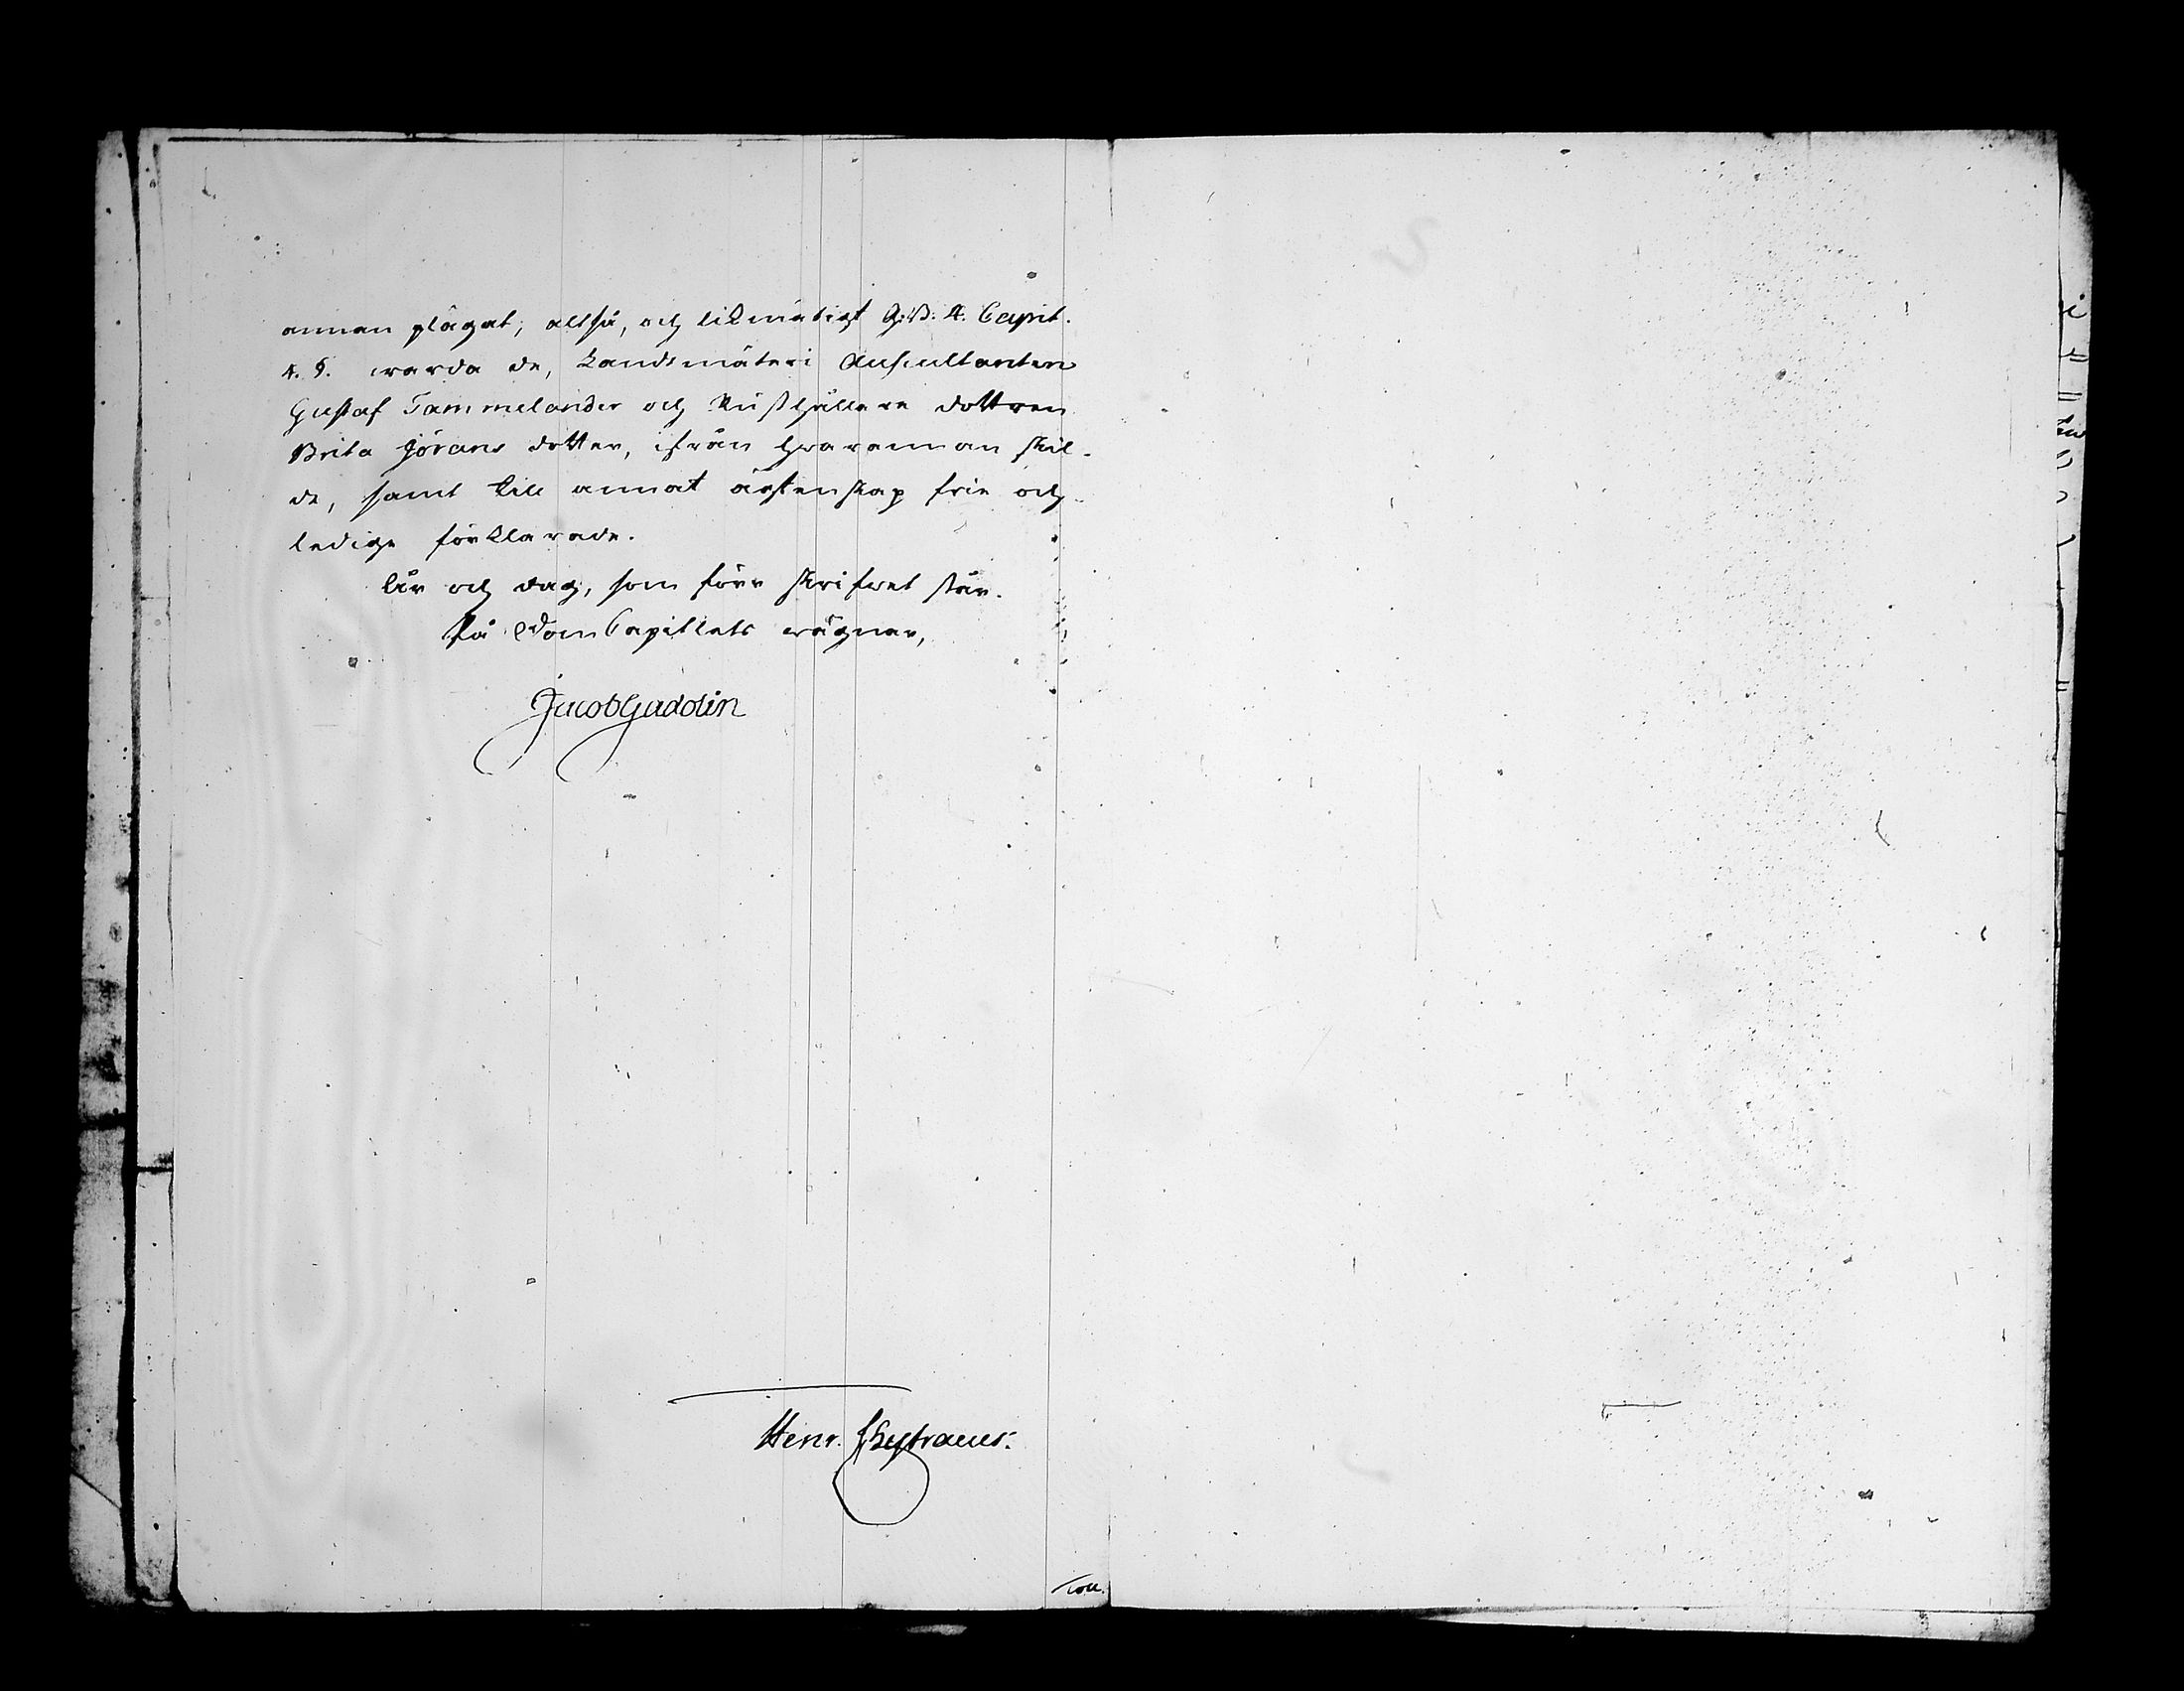 annan plägat; altså, och likmätigt G: B: 4. Capit.
4. §. warda de, Landtmäteri Auscultanten
Gustaf Tammelander och Rusthållare dottren
Brita Jörans dotter, ifrån hwarannan skil-
de, samt till annat ächtenskap frie och
ledige förklarade.
År och dag, som förr skrifwet står.
På Dom Capitlets wägnar,
Jacob Gadolin
Henr.